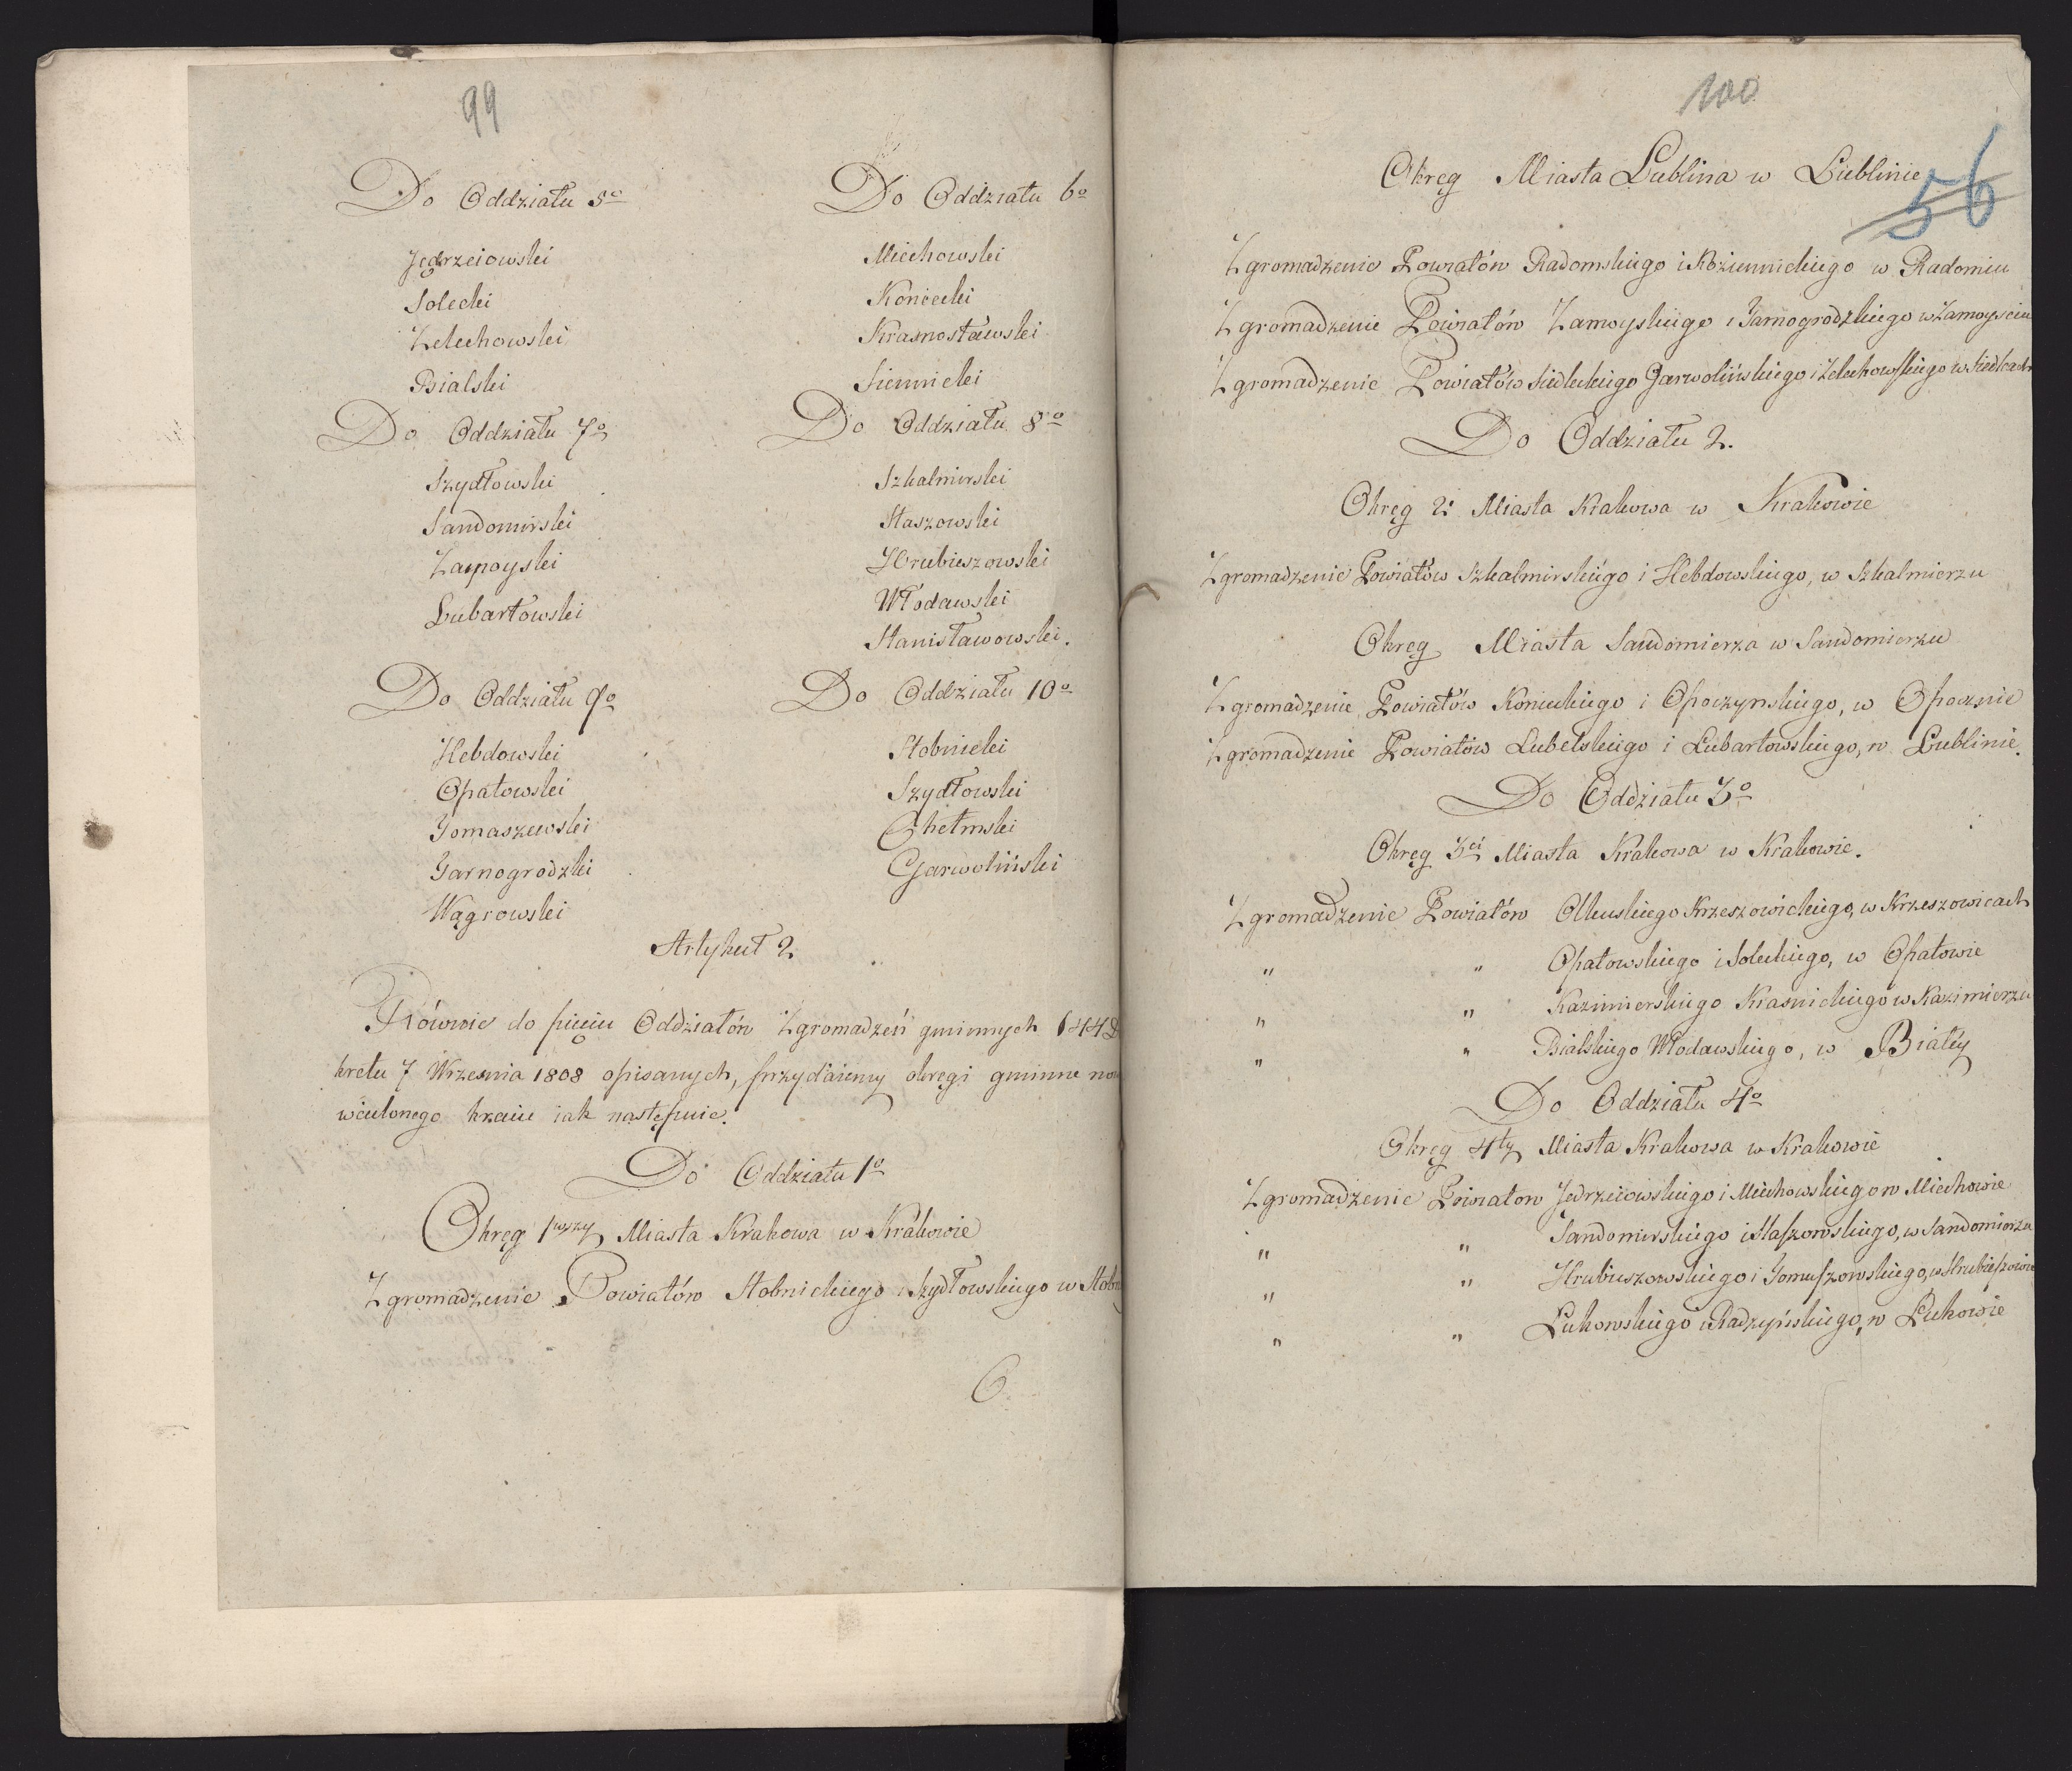 99
Do Oddziału 5º
Jędrzeiowski
Solecki
Zelechowski
Bialski
Do Oddziału 6º
Miechowski
Koniecki
Krasnostawski
Siennicki
Do Oddziału 7º
Szydłowski
Sandomirski
Zamoyski
Lubartowski
Do Oddziału 8º
Szkalmirski
Staszowski
Hrubieszowski
Włodawski
Stanisławowski.
Do Oddziału 9º
Hebdowski
Opatowski
Tomaszewski
Tarnogrodzki
Wągrowski
Do Oddziału 10º
Stobnicki
Szydłowski
Chełmski
Garwoliński
Artykuł 2
Równie do pięciu Oddziałów Zgromadzeń gminnych
kretu 7 Września 1808 opisanych, przydaiemy okręgi gminne
wcielonego kraiu iak następuie.
Do Oddziału 1º
Okręg 1wszy Miasta Krakowa w Krakowie
Zgromadzenie Powiatów Stobnickiego i Szydłowskiego w
100
56
Okręg Miasta Lublina w Lublinie
Zgromadzenie Powiatów Radomskiego i Koziennickiego w Radomiu
Zgromadzenie Powiatów Zamoyskiego i Tarnogrodzkiego w Zamoysciu
Zgromadzenie Powiatów Siedleckiego Garwolińskiego i Zelechowskiego w Siedlcach
Do Oddziału 2.
Okręg 2i Miasta Krakowa w Krakowie
Zgromadzenie Powiatów Szkalmirskiego i Hebdowskiego, w Szkalmierzu
Okręg Miasta Sandomierza w Sandomierzu
Zgromadzenie Powiatów Konieckiego i Opoczynskiego, w Opocznie
Zgromadzenie Powiatów Lubelskiego i Lubartowskiego, w Lublinie.
Do Oddziału 3º
Okręg 3ci Miasta Krakowa w Krakowie.
Zgromadzenie Powiatów Olkuskiego Krzeszowickiego, w Krzeszowicach
" " Opatowskiego i Soleckiego, w Opatowie
" " Kazimierskiego Krasnickiego w Kazimierzu
" " Bialskiego Włodawskiego, w Białéy
Do Oddziału 4º
Okręg 4ty Miasta Krakowa w Krakowie
Zgromadzenie Powiatow Jedrzeiowskiego i Miechowskiego w Miechowie
" " Sandomirskiego i Staszowskiego, w Sandomierzu
" " Hrubieszowskiego i Tomaszowskiego, w Hrubieszowie
" " Łukowskiego i Radzyńskiego, w Łukowie